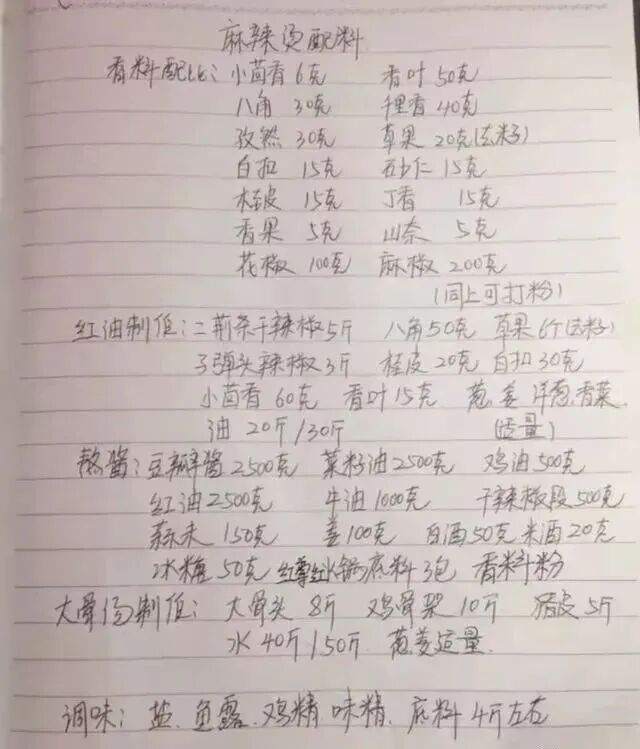 麻辣烫配料
香料配比：小茴香 6克 香叶 50克
八角 30克 千里香 40克
孜然 30克 草果 20克(去籽)
白扣 15克 砂仁 15克
桂皮 15克 丁香 15克
香果 5克 山奈 5克
花椒 100克 麻椒 200克
(同上可打粉)
红油制值：二荆条干辣椒 5斤 八角 50克 草果 6个(去籽)
子弹头辣椒 3斤 桂皮 20克 白扣 30克
小茴香 60克 香叶 15克 葱、姜 洋葱、香菜
油 20斤/30斤 (适量)
熬酱：豆瓣酱 2500克 菜籽油 2500克 鸡油 500克
红油 2500克 牛油 1000克 干辣椒段 500克
蒜末 150克 姜 100克 白酒 50克 米酒 20克
冰糖 50克 火锅底料 3包 香料粉
大骨汤制值：大骨头 8斤 鸡骨架 10斤 猪皮 5斤
水 40斤/50斤 葱姜适量.
调味：盐、鱼露、鸡精 味精、底料 4斤左右